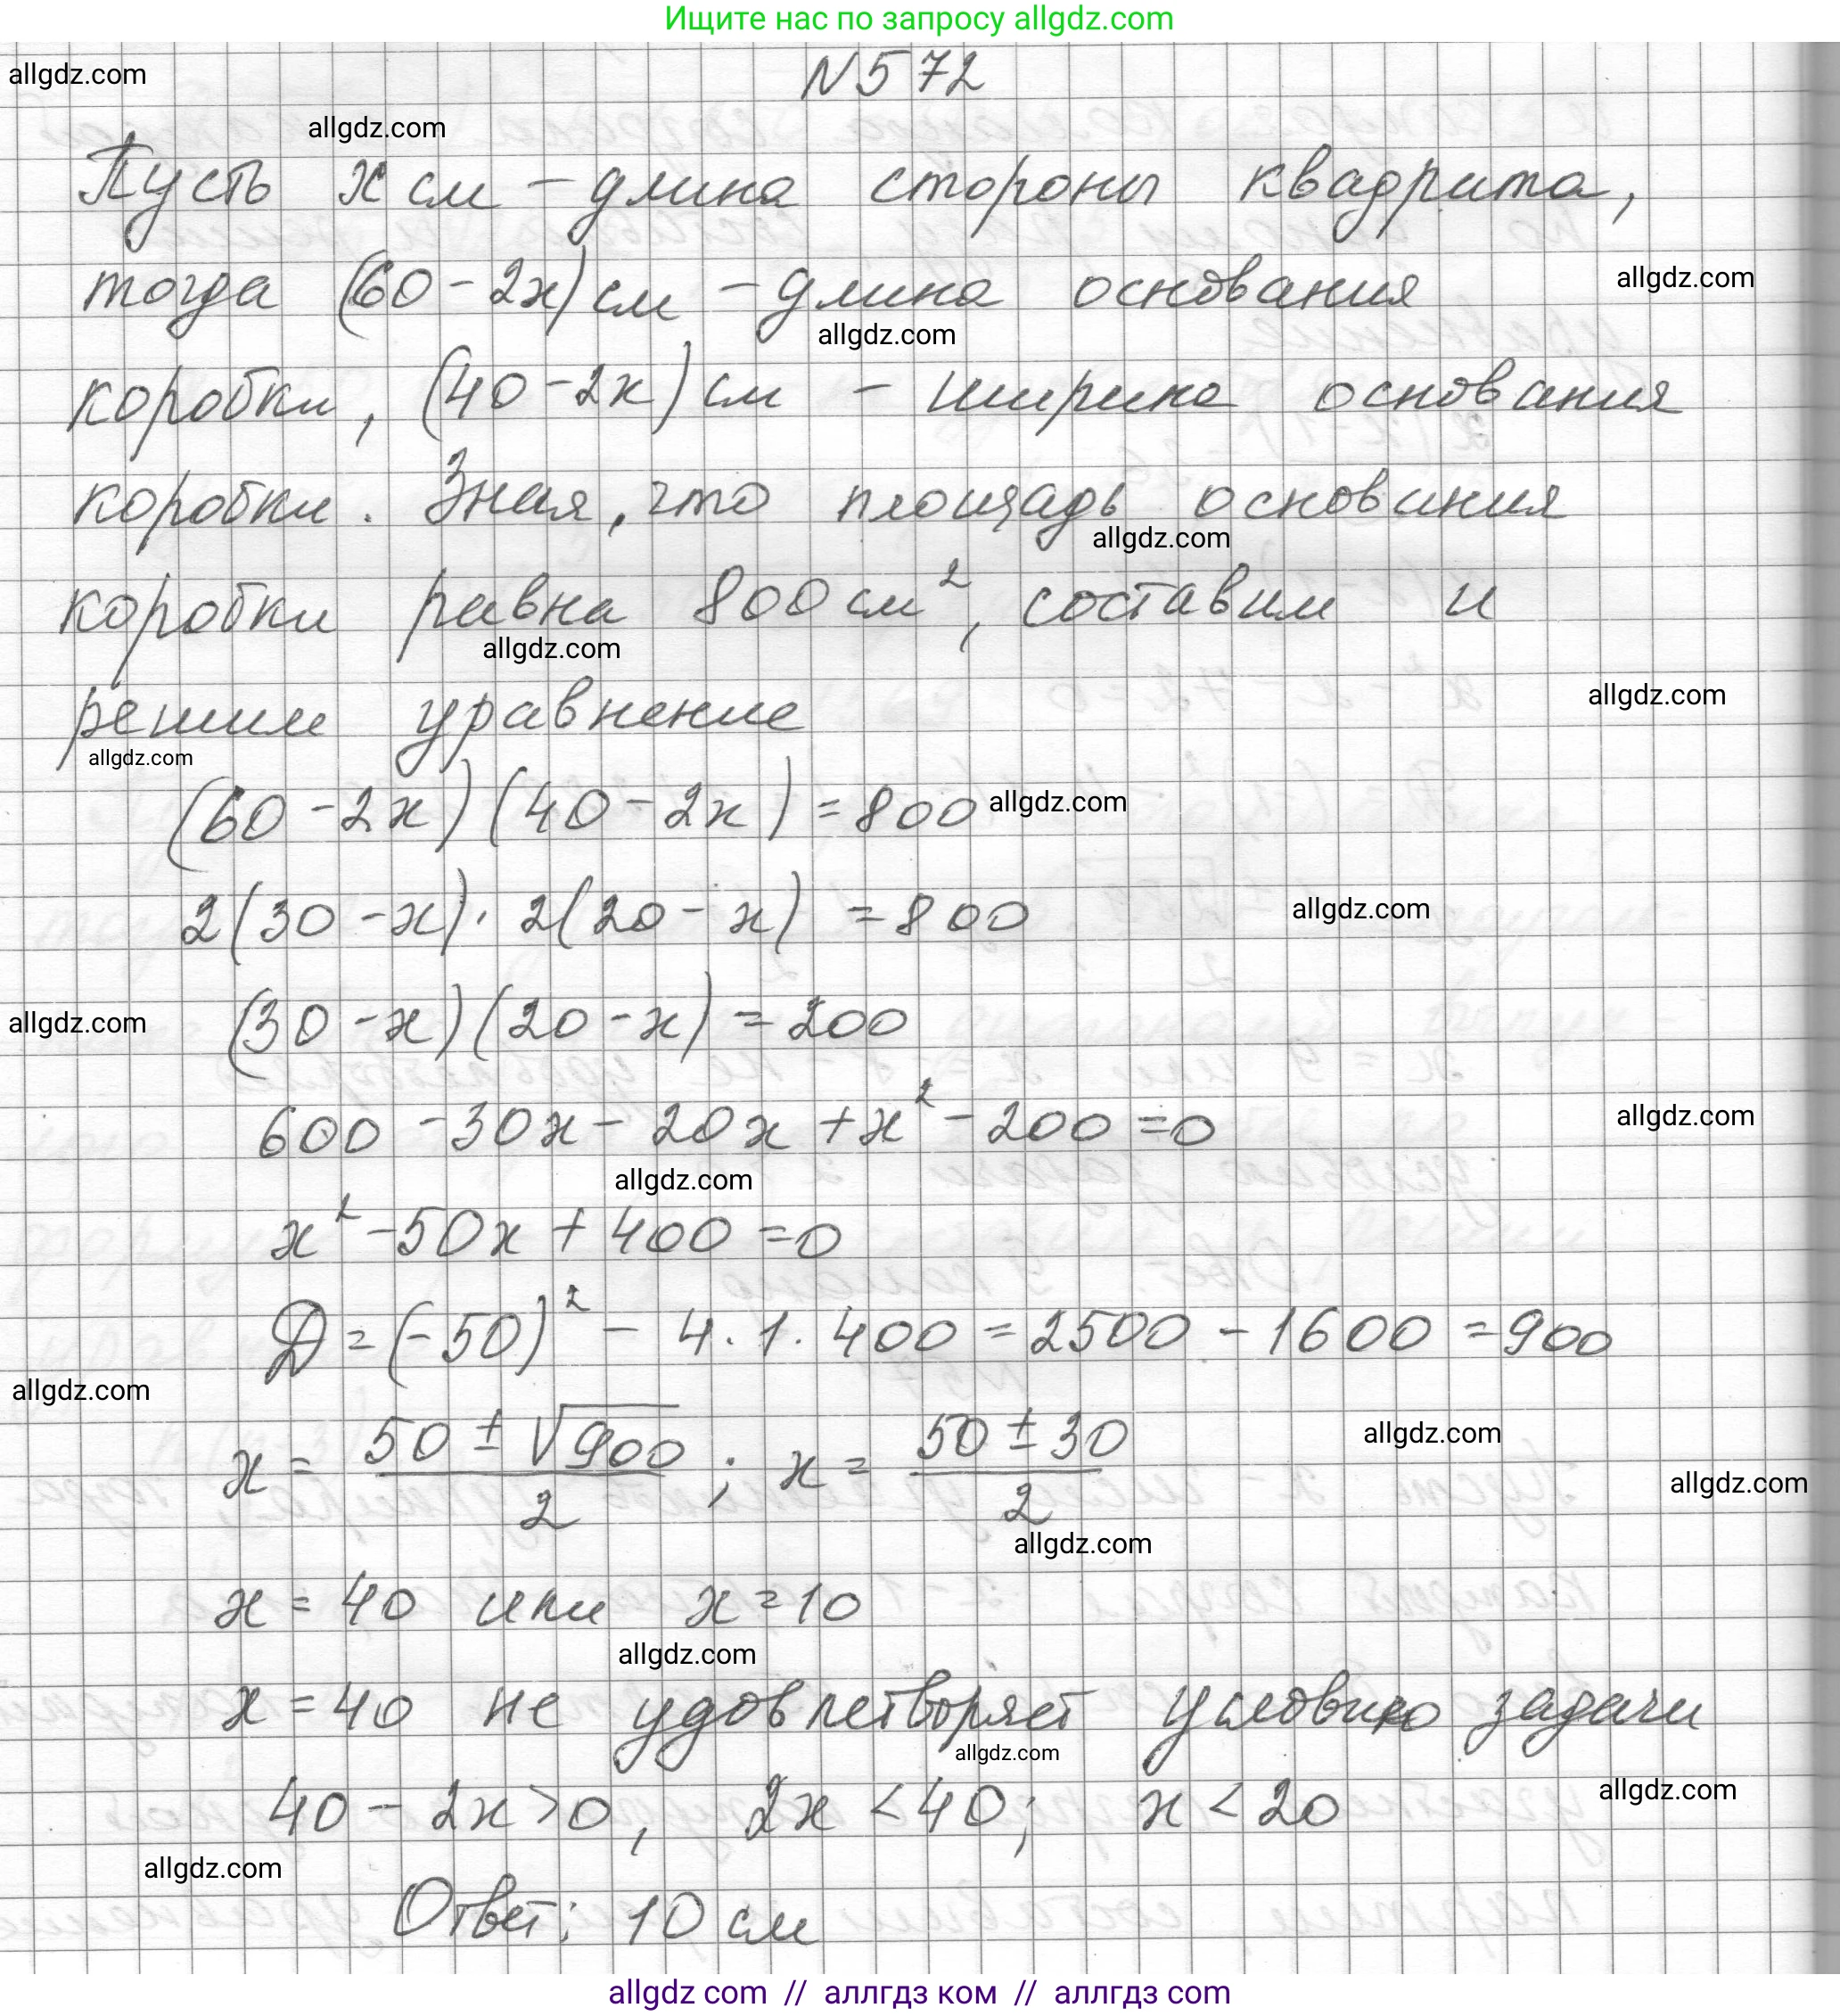 Ищите нас по запросу allgdz.com
allgdz.com
N 572
allgdz.com
Пусть x см – длина стороны квадрата,
тогда (60 - 2x) см – длина основания
allgdz.com
allgdz.com
коробки, (40 - 2x) см – ширина основания
коробки. Зная, что площадь основания
allgdz.com
коробки равна 800 см², составим и
allgdz.com
решим уравнение
allgdz.com
allgdz.com
(60 - 2x)(40 - 2x) = 800
allgdz.com
2(30 - x) · 2(20 - x) = 800
allgdz.com
(30 - x)(20 - x) = 200
allgdz.com
600 - 30x - 20x + x² - 200 = 0
allgdz.com
allgdz.com
x² - 50x + 400 = 0
D = (-50)² - 4 · 1 · 400 = 2500 - 1600 = 900
allgdz.com
x = (50 ± √900)/2 ; x = (50 ± 30)/2
allgdz.com
allgdz.com
allgdz.com
x = 40 или x = 10
allgdz.com
x = 40 не удовлетворяет условию задачи
allgdz.com
40 - 2x > 0, 2x < 40; x < 20
allgdz.com
allgdz.com
Ответ: 10 см
allgdz.com // аллгдз ком // аллгдз com